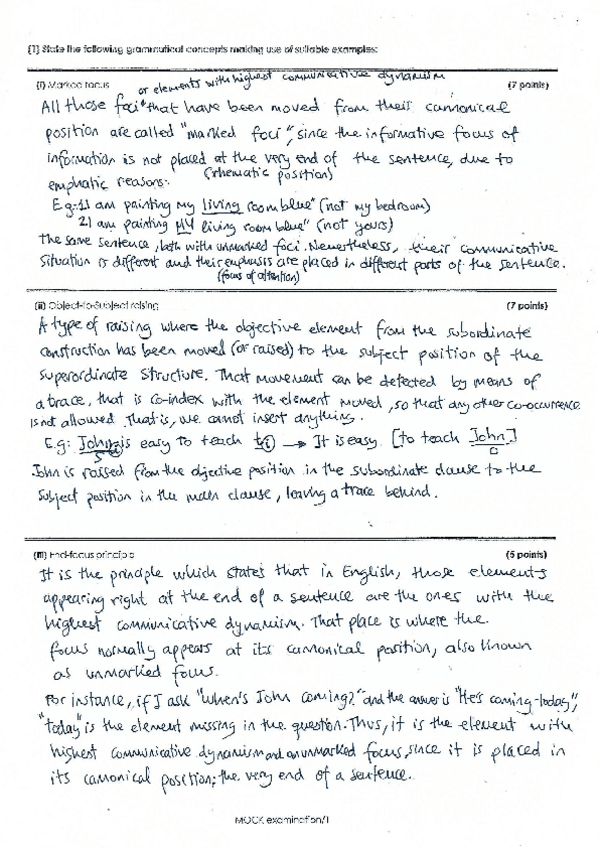 (1) State the following grammatical concepts making use of suitable examples:
or elements with highest communicative dynamism
(i) Marked focus (7 points)
All those foci that have been moved from their canonical
position are called "marked foci", since the informative focus of
information is not placed at the very end of the sentence, due to
(rhematic position)
emphatic reasons:
E.g: 1) I am painting my living room blue" (not my bedroom)
2) I am painting MY living room blue" (not yours)
The same sentence, both with unmarked foci. Nevertheless, their communicative
situation is different and their emphasis are placed in different parts of the sentence.
(focus of attention)
(ii) Object-to-Subject raising (7 points)
A type of raising where the objective element from the subordinate
construction has been moved (or raised) to the subject position of the
superordinate structure. That movement can be detected by means of
a trace, that is co-index with the element moved, so that any other co-occurrence
is not allowed. That is, we cannot insert anything.
E.g: John is easy to teach t → It is easy [to teach John]
S O
John is raised from the objective position in the subordinate clause to the
subject position in the main clause, leaving a trace behind.
(iii) End-focus principle (5 points)
It is the principle which states that in English, those elements
appearing right at the end of a sentence are the ones with the
highest communicative dynamism. That place is where the
focus normally appears at its canonical position, also known
as unmarked focus.
For instance, if I ask "When's John coming?" and the answer is "He's coming today",
"today" is the element missing in the question. Thus, it is the element with
highest communicative dynamism and an unmarked focus, since it is placed in
its canonical position; the very end of a sentence.
MOCK examination/1